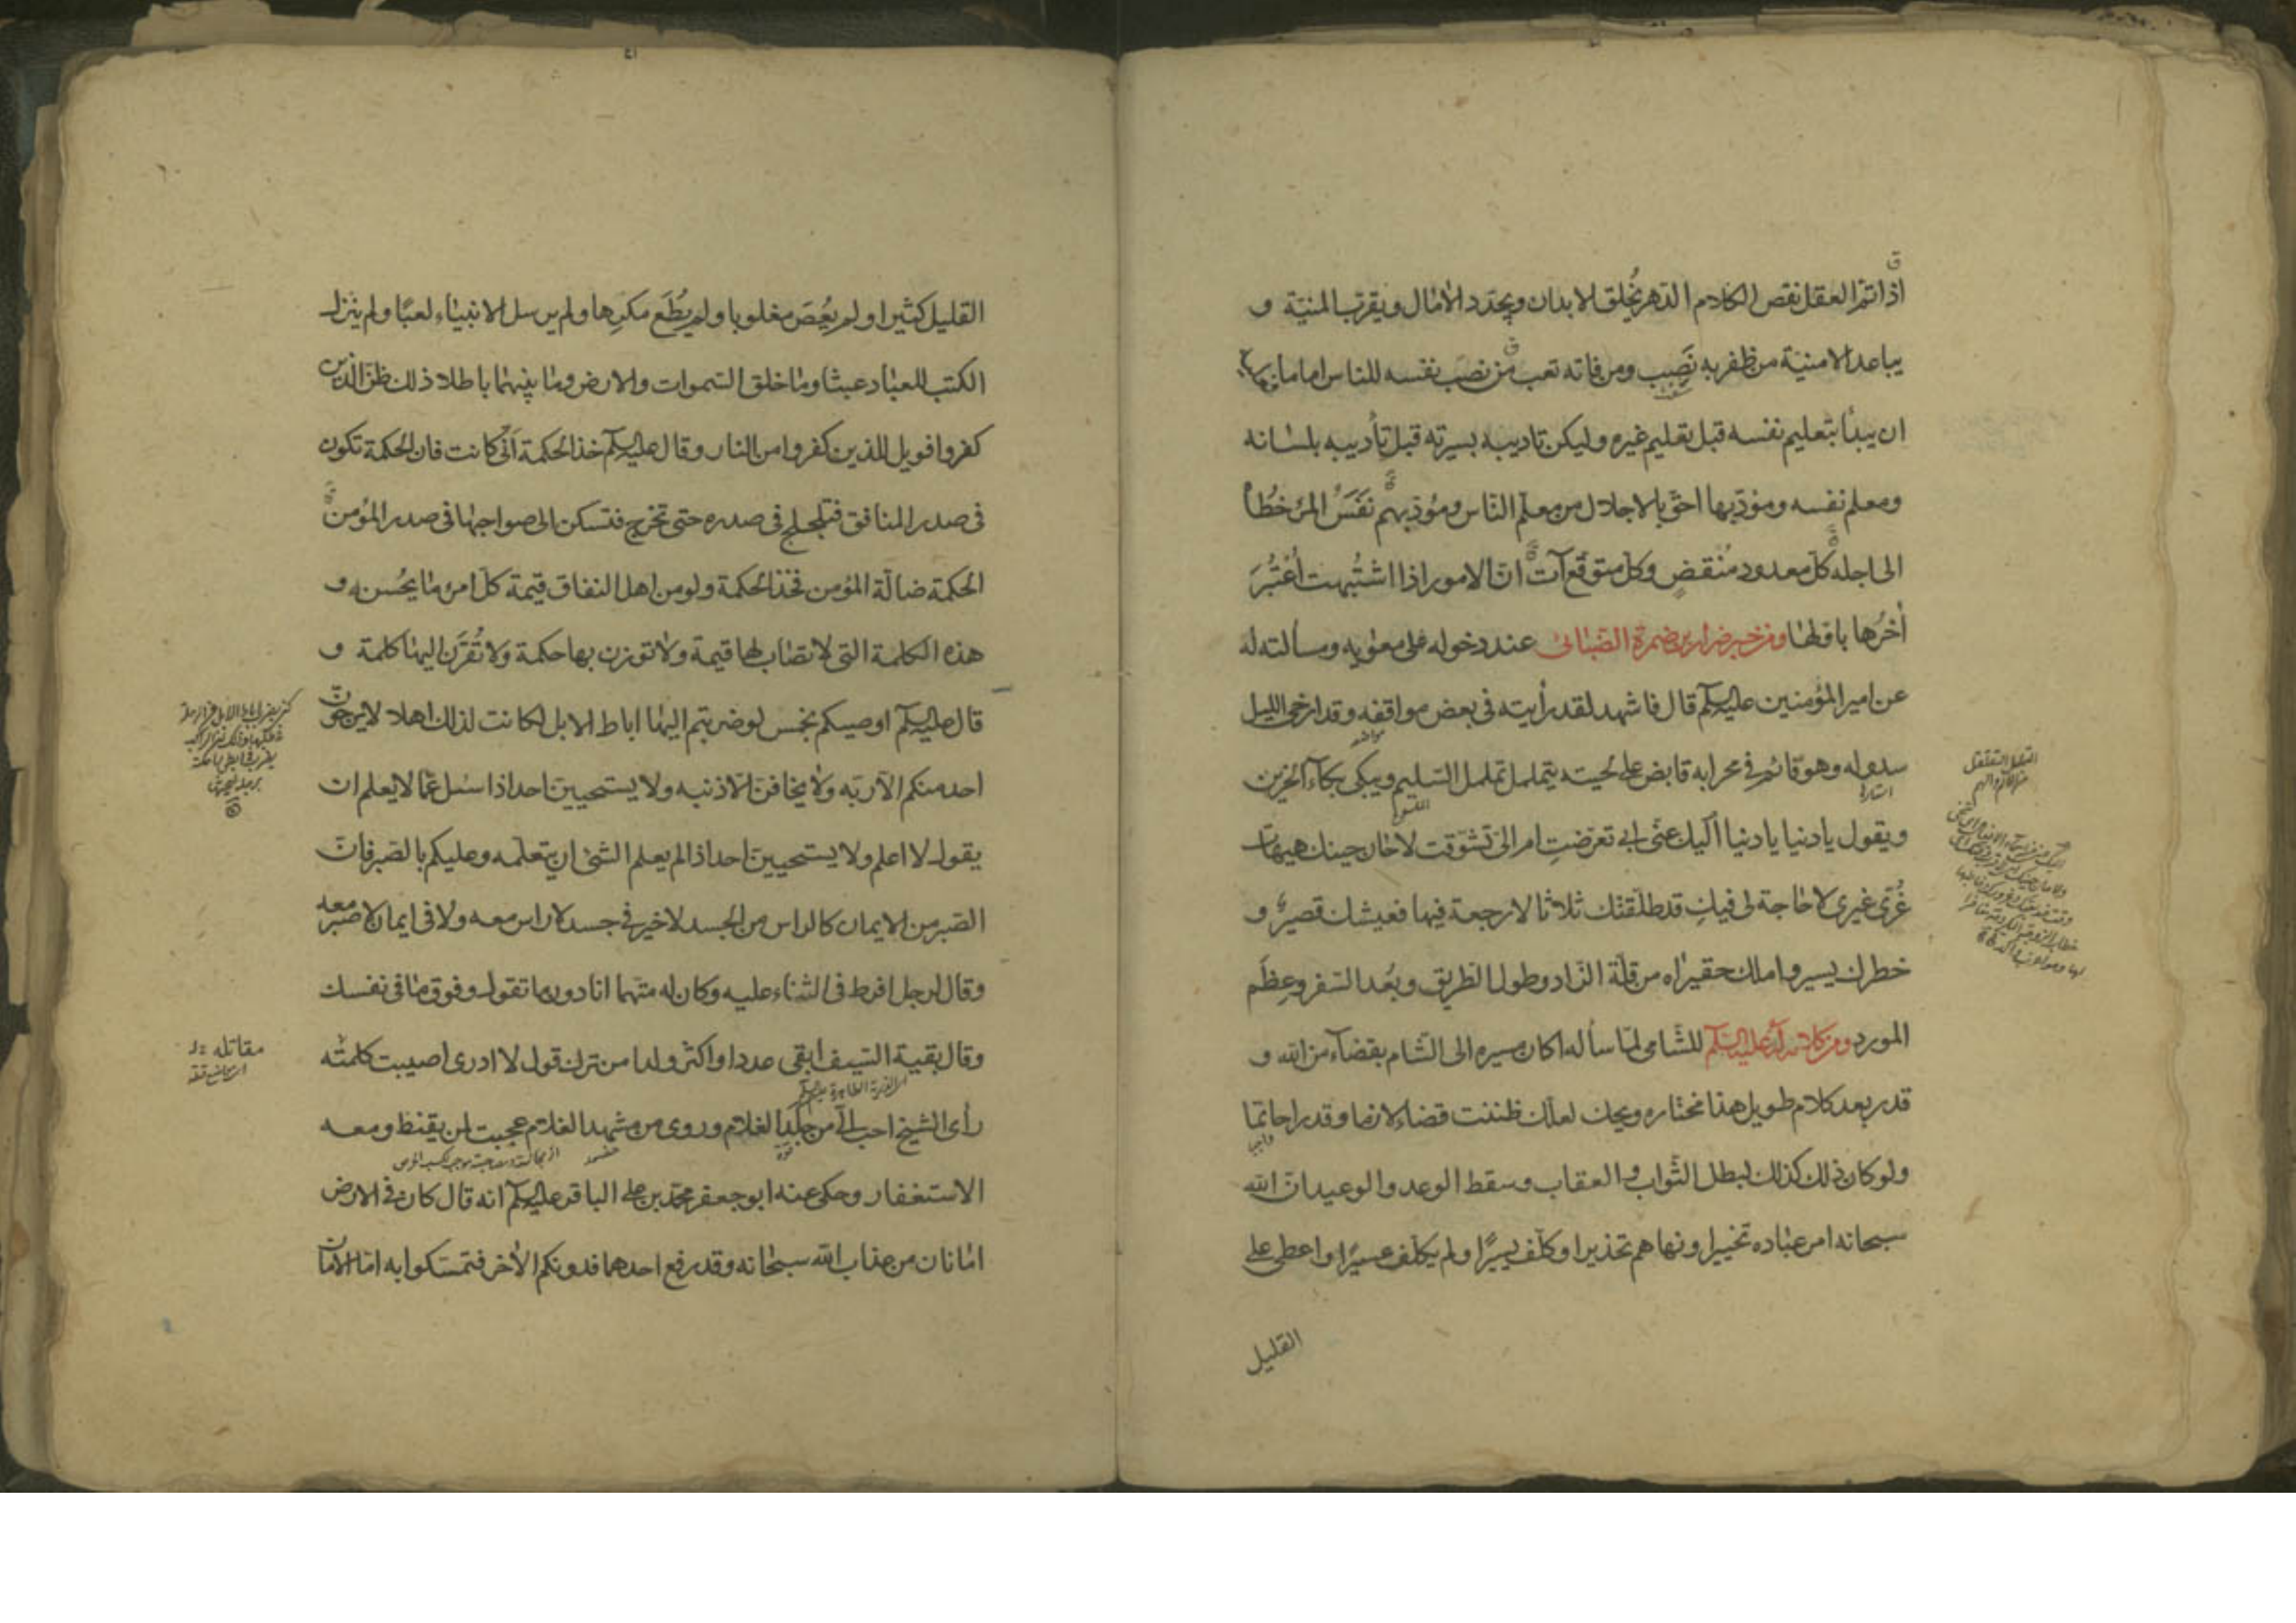 اذا تم العقل نقص الكلام الدهر يُخلق الابدان ويجدّد الامال ويقرب المنيّة و
يباعد الامنيّة من ظفر به نَصِب ومن فاته تعب من نصَب نفسه للناس اماما
ان يبدأ بتعليم نفسه قبل تعليم غيره وليكن تاديبه بسيرته قبل تأديبه بلسانه
ومعلم نفسه ومؤدّبها احقّ بالاجلال من معلّم النّاس ومؤدّبهم نَفَسُ المرء خُطاهُ
الى اجله كلّ معدود مُنقضٍ وكلّ متوقّع آتٍ انّ الامور اذا اشتُبهت اُعْتُبُرَ
أخرُها باولها ومن خبر ضرار بن ضمرة الضبائى عند دخوله على معويه ومسألته له
عن امير المؤمنين عليه السلم قال فاشهد لقد رأيته فى بعض مواقفه وقد ارخى الليل
سدوله وهو قائم فى محرابه قابض على لحيته يتململ تململ السليم ويبكى بكآء الحزين
ويقول يا دنيا يا دنيا اليك عنّى ابى تعرّضتِ ام الىّ تشوّقت لا حان حينك هيهات
غُرّى غيرى لا حاجة لى فيكِ قد طلّقتك ثلاثا لا رجعة فيها فعيشك قصير و
خطرك يسير واملك حقير اه من قلّة الزّاد وطول الطّريق وبُعد السّفر وعِظَم
المورد ومن كلام له عليه السلم للشّامى لمّا سأله اكان مسيره الى الشّام بقضآء من الله و
قدر بعد كلام طويل هذا مختاره ويحك لعلّك ظننت قضاء لازما وقدرا حاتما
ولو كان ذلك كذلك لبطل الثّواب والعقاب وسقط الوعد والوعيد انّ الله
سبحانه امر عباده تخييرا ونهاهم تحذيرا وكلّف يسيرًا ولم يكلّف عسيرًا واعطى على
القليل
القليل كثيرا ولم يُعْصَ مغلوبا ولم يُطَع مكرِها ولم يرسل الانبياء لعبًا ولم ينزل
الكتب للعباد عبثا وما خلق السّموات والارض وما بينهما باطلا ذلك ظنّ الّذين
كفروا فويل للذين كفروا من النار وقال عليه السلم خذ الحكمة أنّى كانت فان الحكمة تكون
فى صدر المنافق فتلجلج فى صدره حتى تخرج فتسكن الى صواحبها فى صدر المؤمن
الحكمة ضالّة المؤمن فخذ الحكمة ولو من اهل النفاق قيمة كلّ امرئ ما يُحْسن و
هذه الكلمة التى لا تصاب لها قيمة ولا توزن بها حكمة ولا تُقرَن اليها كلمة و
قال عليه السلم اوصيكم بخمس لو ضربتم اليها اباط الابل لكانت لذلك اهلا لا يرجونّ
احد منكم الّا ربّه ولا يخافنّ الّا ذنبه ولا يستحيينّ احد اذا سئل عمّا لا يعلم ان
يقول لا اعلم ولا يستحيينّ احد اذا لم يعلم الشئ ان يتعلّمه وعليكم بالصّبر فانّ
الصّبر من الايمان كالراس من الجسد لا خير فى جسد لا راس معه ولا فى ايمان لا صبر معه
وقال لرجل افرط فى الثناء عليه وكان له متّهما انا دون ما تقول وفوق ما فى نفسك
وقال بقية السّيف ابقى عددا واكثر ولدا من ترك قول لا ادرى اصيبت مقاتله كلمته
رأى الشيخ احب الىّ من جلد الغلام وروى من مشهد الغلام عجبت لمن يقنط ومعه
الاستغفار وحكى عنه ابو جعفر محمّد بن على الباقر عليه السلم انه قال كان فى الارض
امانان من عذاب الله سبحانه وقد رفع احدهما فدونكم الاخر فتمسكوا به امّا الامان
مقاتله